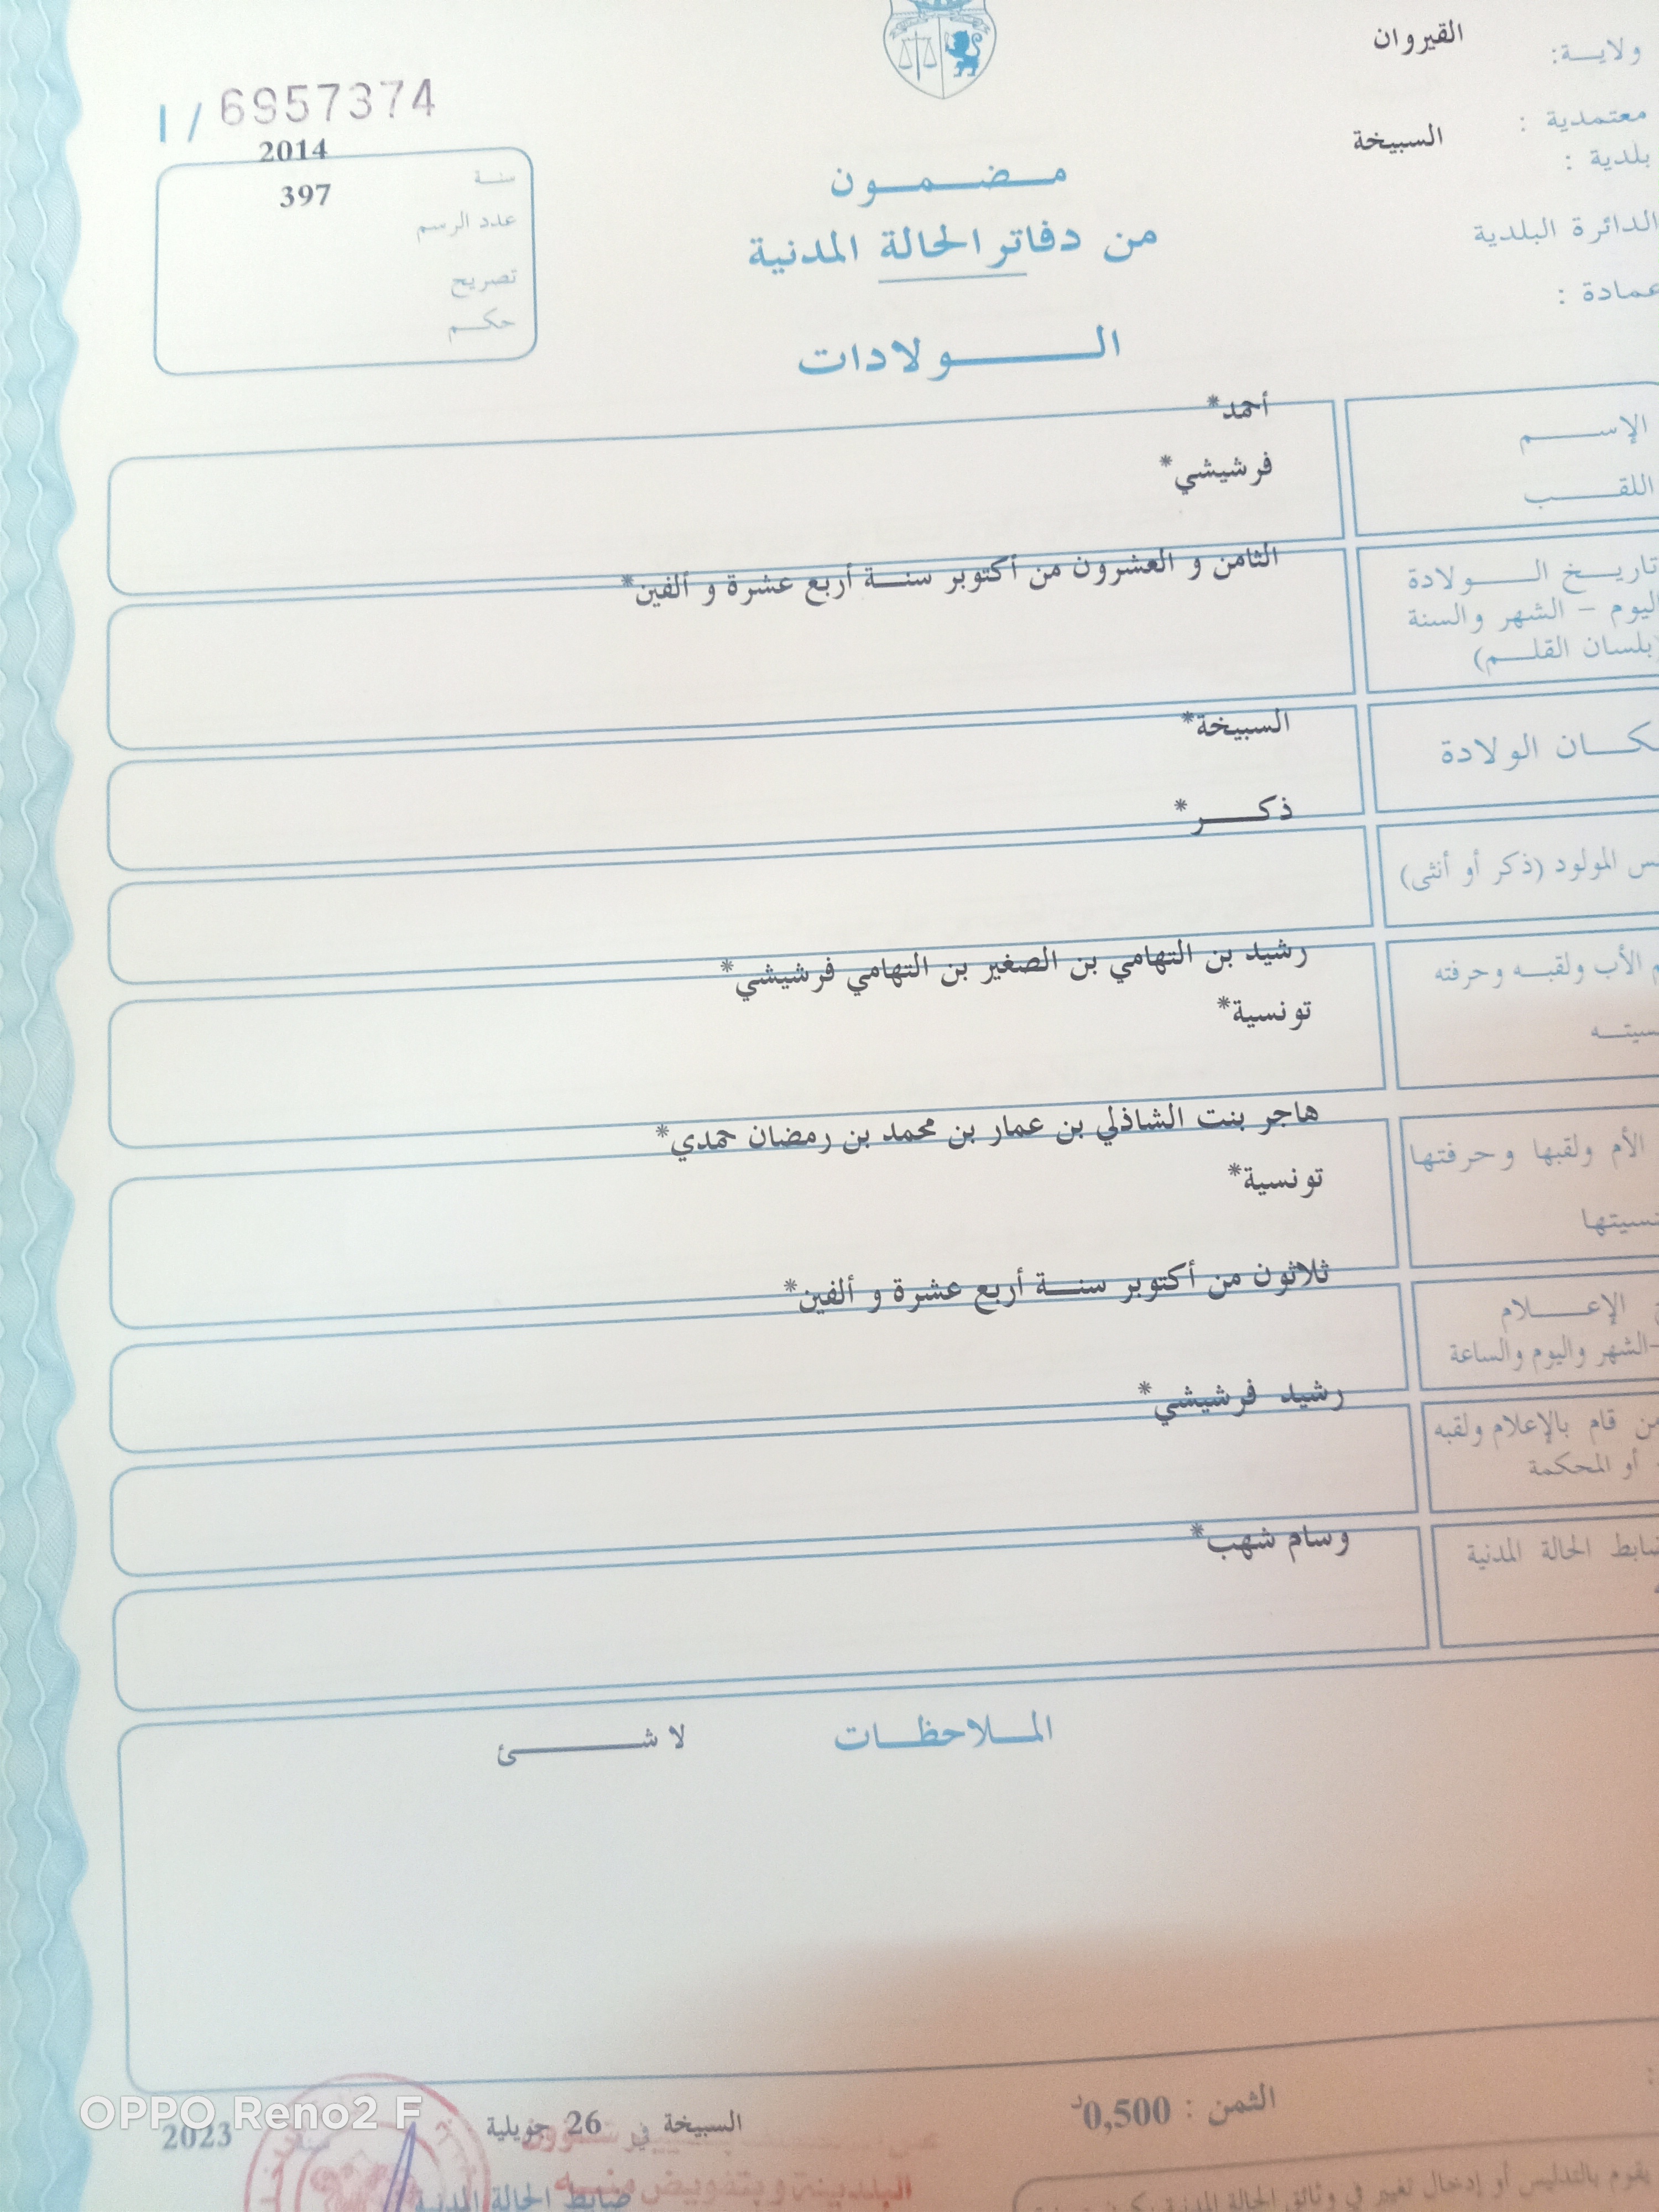 ولاية: القيروان
معتمدية :
بلدية : السبيخة
الدائرة البلدية
عمادة :
I / 6957374
2014
سنة
397
عدد الرسم
تصريح
حكم
مضمون
من دفاتر الحالة المدنية
الولادات
الإسم
أحمد*
اللقب
فرشيشي*
تاريخ الولادة
اليوم - الشهر والسنة
(بلسان القلم)
الثامن و العشرون من أكتوبر سنة أربع عشرة و ألفين*
الولادة
السبيخة*
المولود (ذكر أو أنثى)
ذكر*
الأب ولقبه وحرفته
رشيد بن التهامي بن الصغير بن التهامي فرشيشي*
تونسية*
الأم ولقبها وحرفتها
هاجر بنت الشاذلي بن عمار بن محمد بن رمضان حمدي*
تونسية*
الإعلام
-الشهر واليوم والساعة
ثلاثون من أكتوبر سنة أربع عشرة و ألفين*
قام بالإعلام ولقبه
أو المحكمة
رشيد فرشيشي*
الحالة المدنية
وسام شهب*
الملاحظات
لا شئ
الثمن : 0,500د
السبيخة في 26 جويلية 2023
البلدية وبتفويض منه
ضابط الحالة المدنية
يقوم بالتدليس أو إدخال تغيير في وثائق الحالة المدنية
OPPO Reno2 F